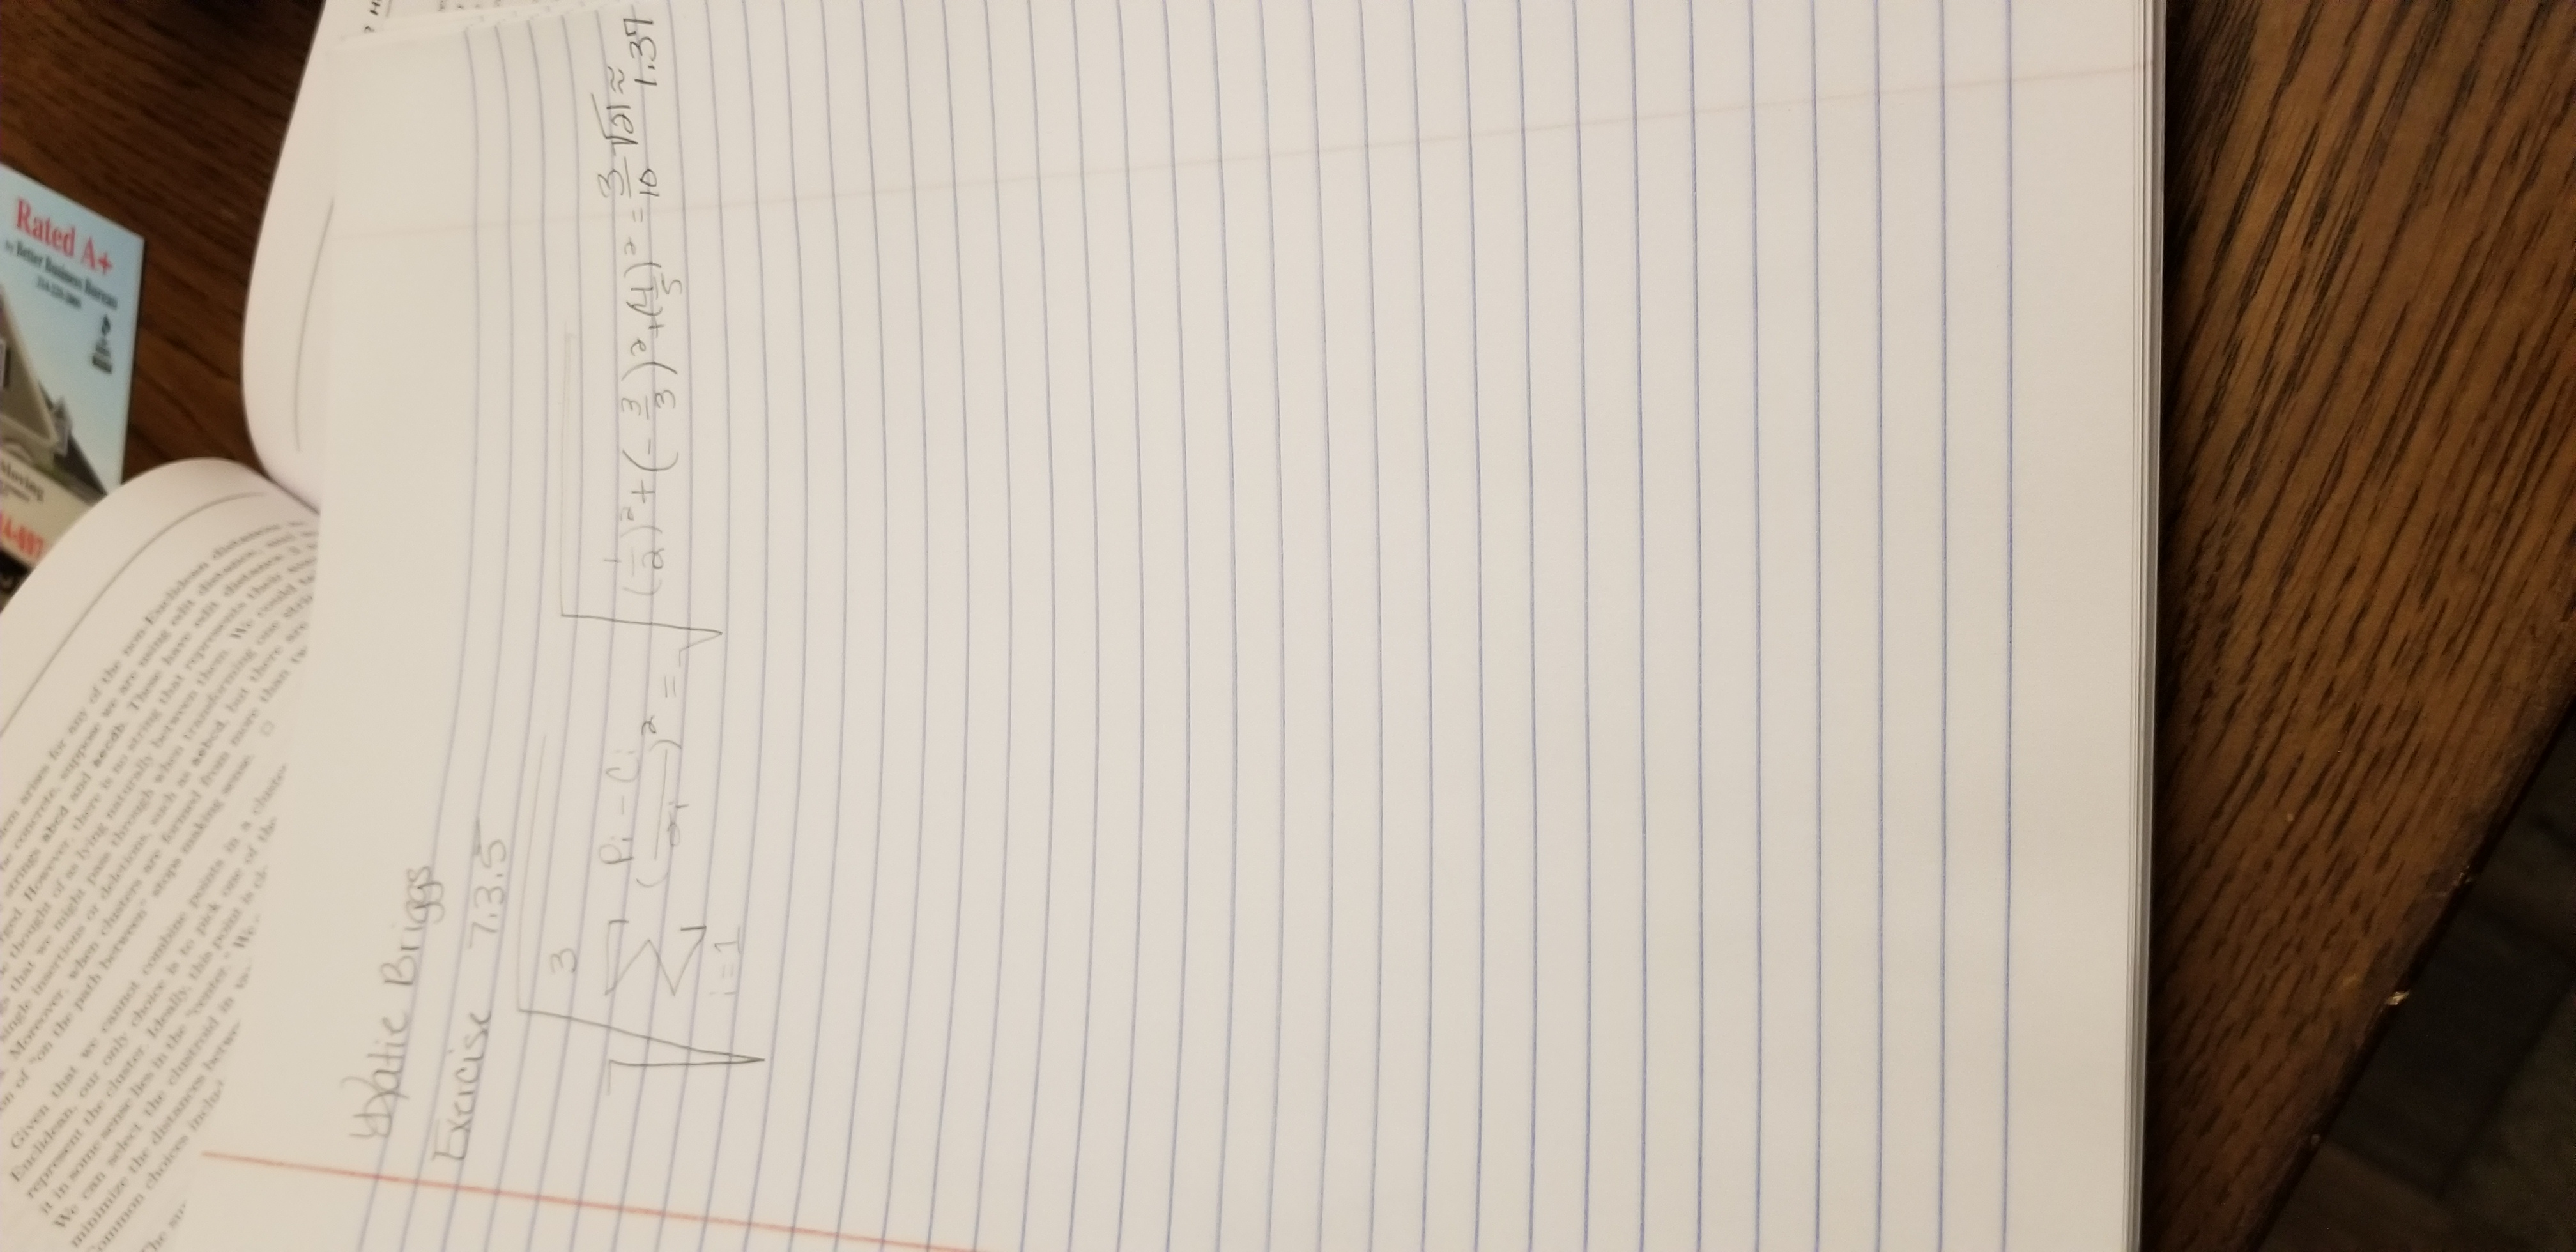 Rated A+
by Better Business Bureau
lem arises for any of the non-Euclidean distance
be concrete, suppose we are using edit distance
strings abcd and aecdb. These have edit distance 3
ged. However, there is no string that represents their
thought of as lying naturally between them. We could
that we might pass through when transforming one stri
single insertions or deletions, such as aebcd, but there are
Moreover, when clusters are formed from more than tw
on of "on the path between" stops making sense.
Given that we cannot combine points in a cluster
Euclidean, our only choice is to pick one of the
represent the cluster. Ideally, this point is cl
it in some sense lies in the "center." We
We can select the clustroid in
minimize the distances betwe
Common choices includ
The su
Katie Briggs
Exercise 7.3.5
√ 3 Σ i=1 (Pi - Ci / σi)² = √ (1/2)² + (- 3/3)² + (4/5)² = 3/10 √21 ≈
1.37